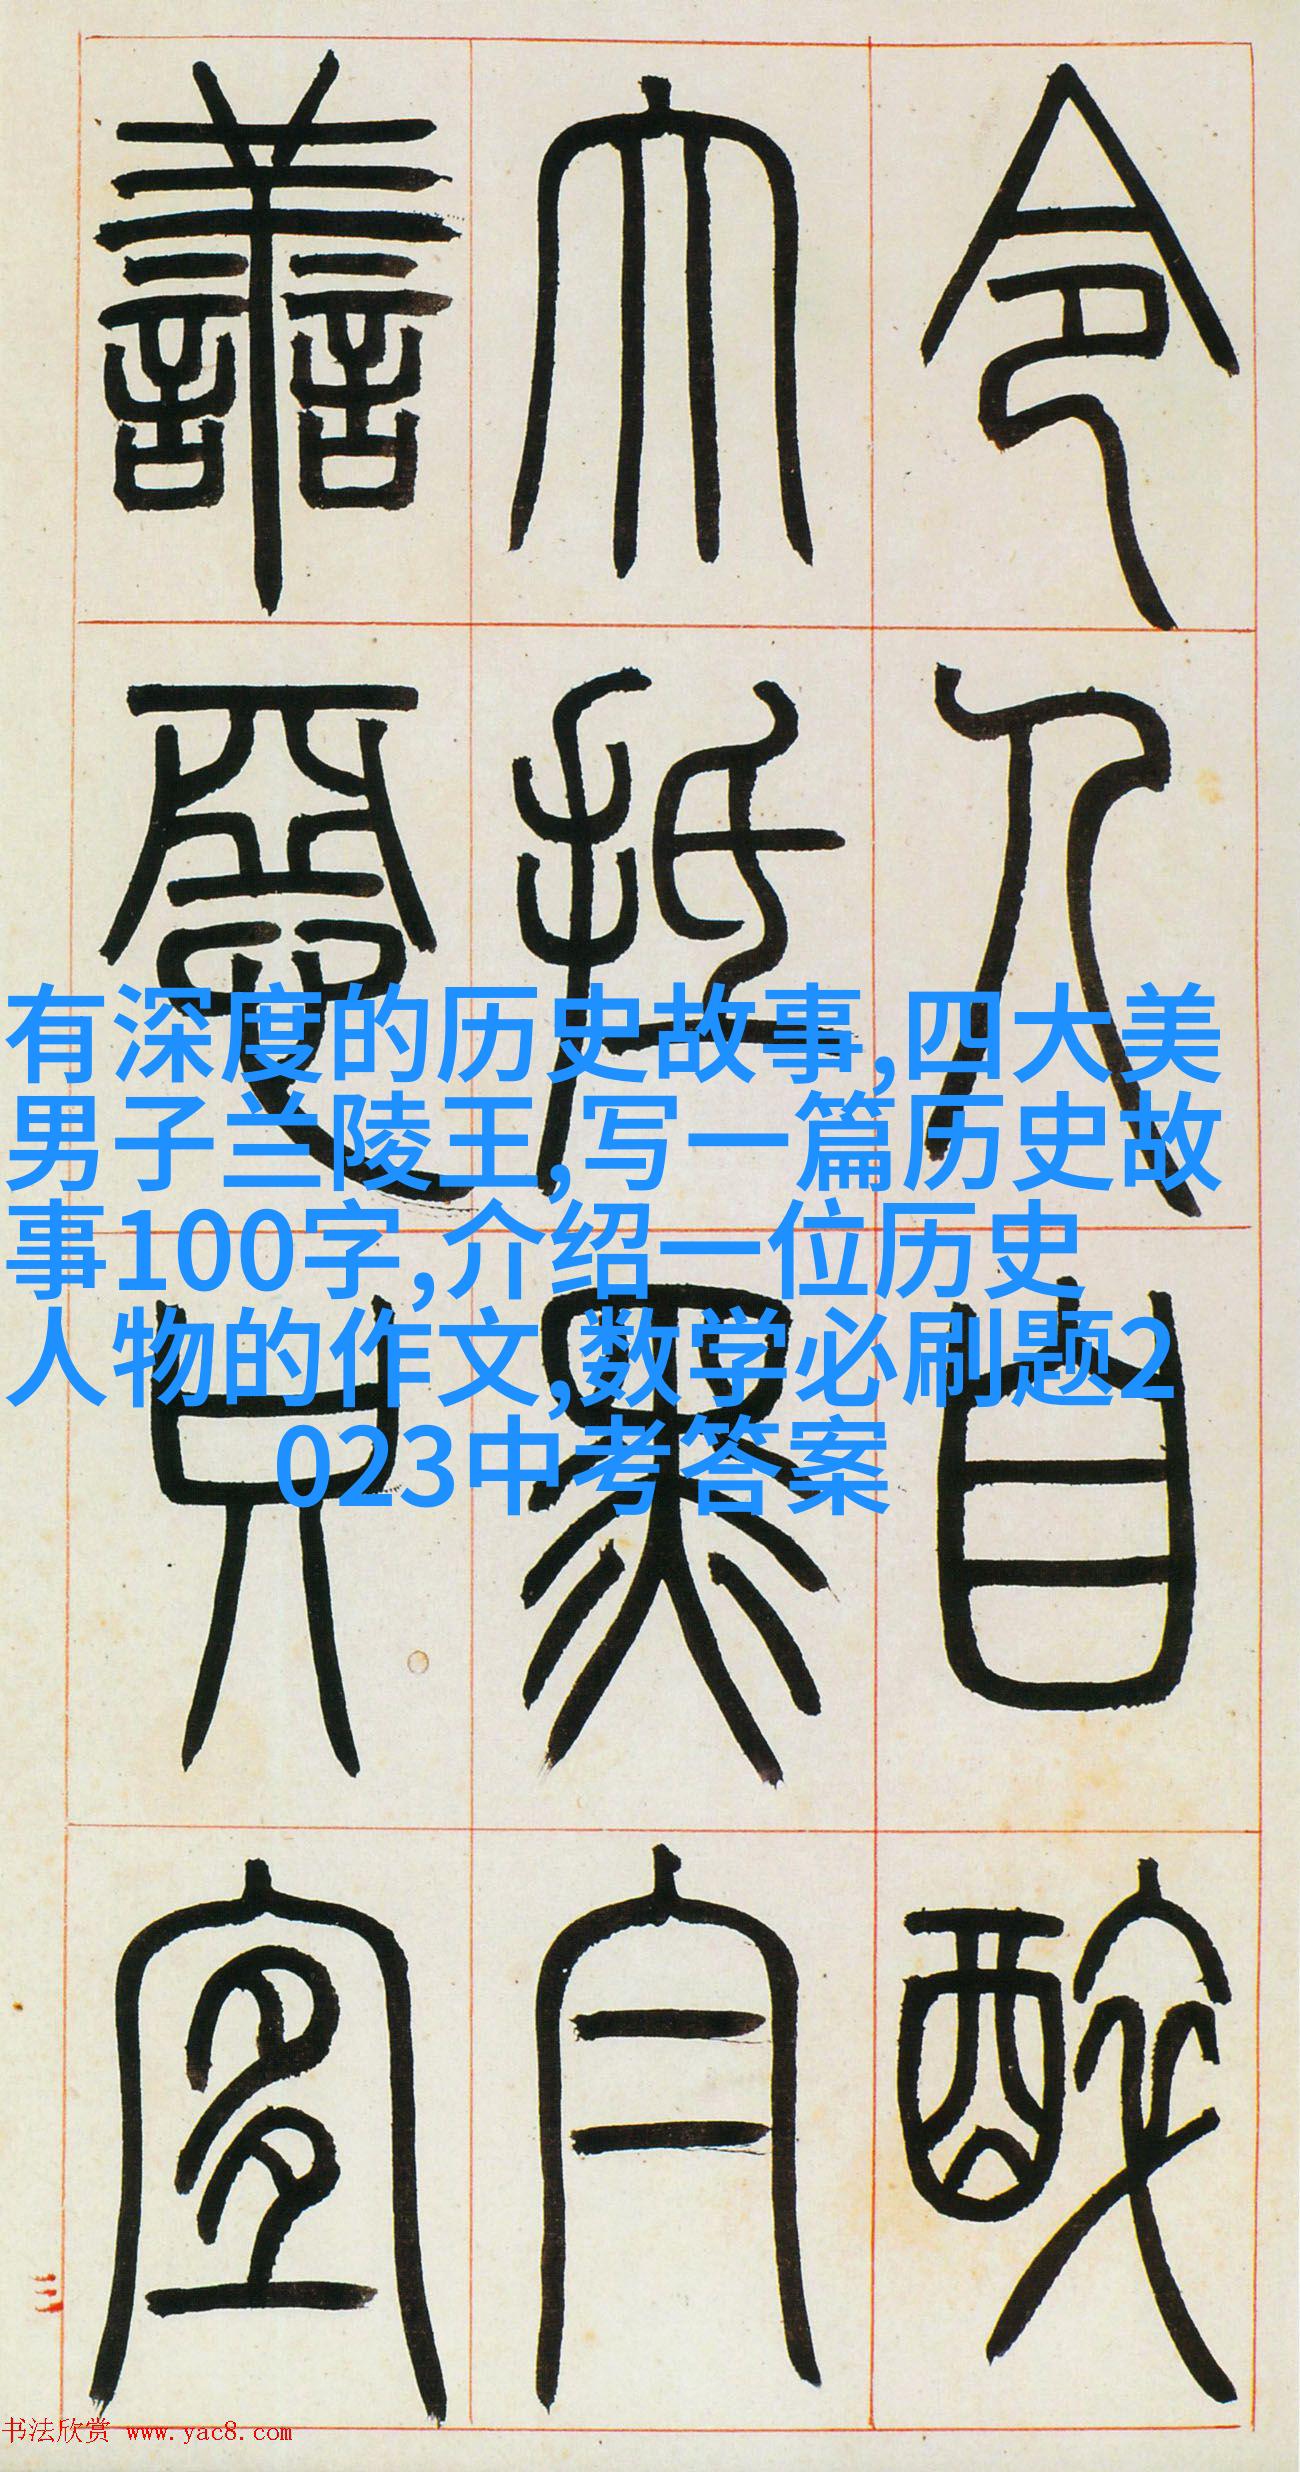 令人自醉
大抵
善
只宜
有深度的历史故事,四大美
男子兰陵王,写一篇历史故
事100字,介绍一位历史
人物的作文,数学必刷题2
023中考答案
三
书法欣赏 www.yac8.com